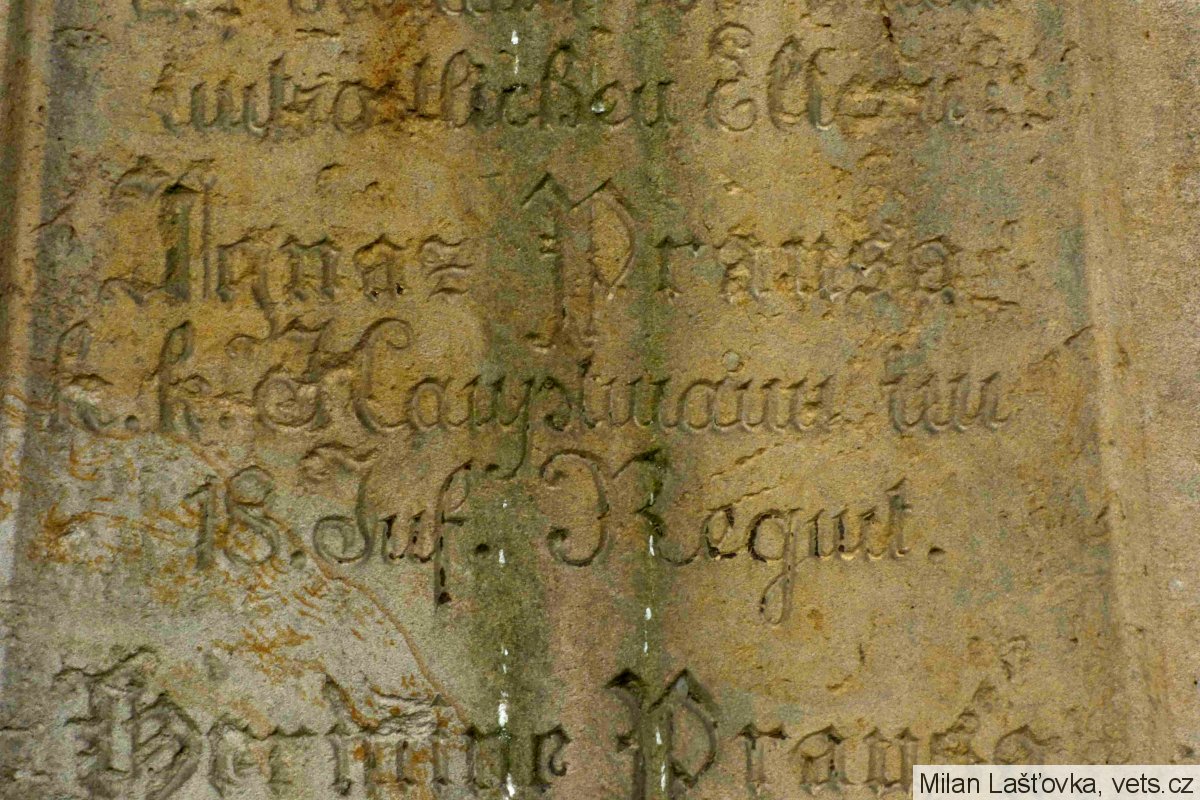 Eltern
Ignaz Prauša
k. k. Hauptmann im
18. Inf. Regmt.
Hermine Prauša
Milan Lašťovka, vets.cz